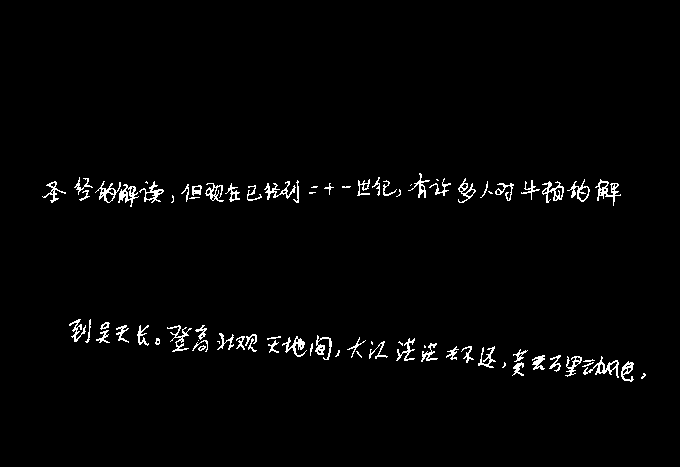 圣经的解读,但现在已经到二十一世纪,有许多人对牛顿的解
到吴天长。登高壮观天地间,大江茫茫去不还,黄云万里动风色,